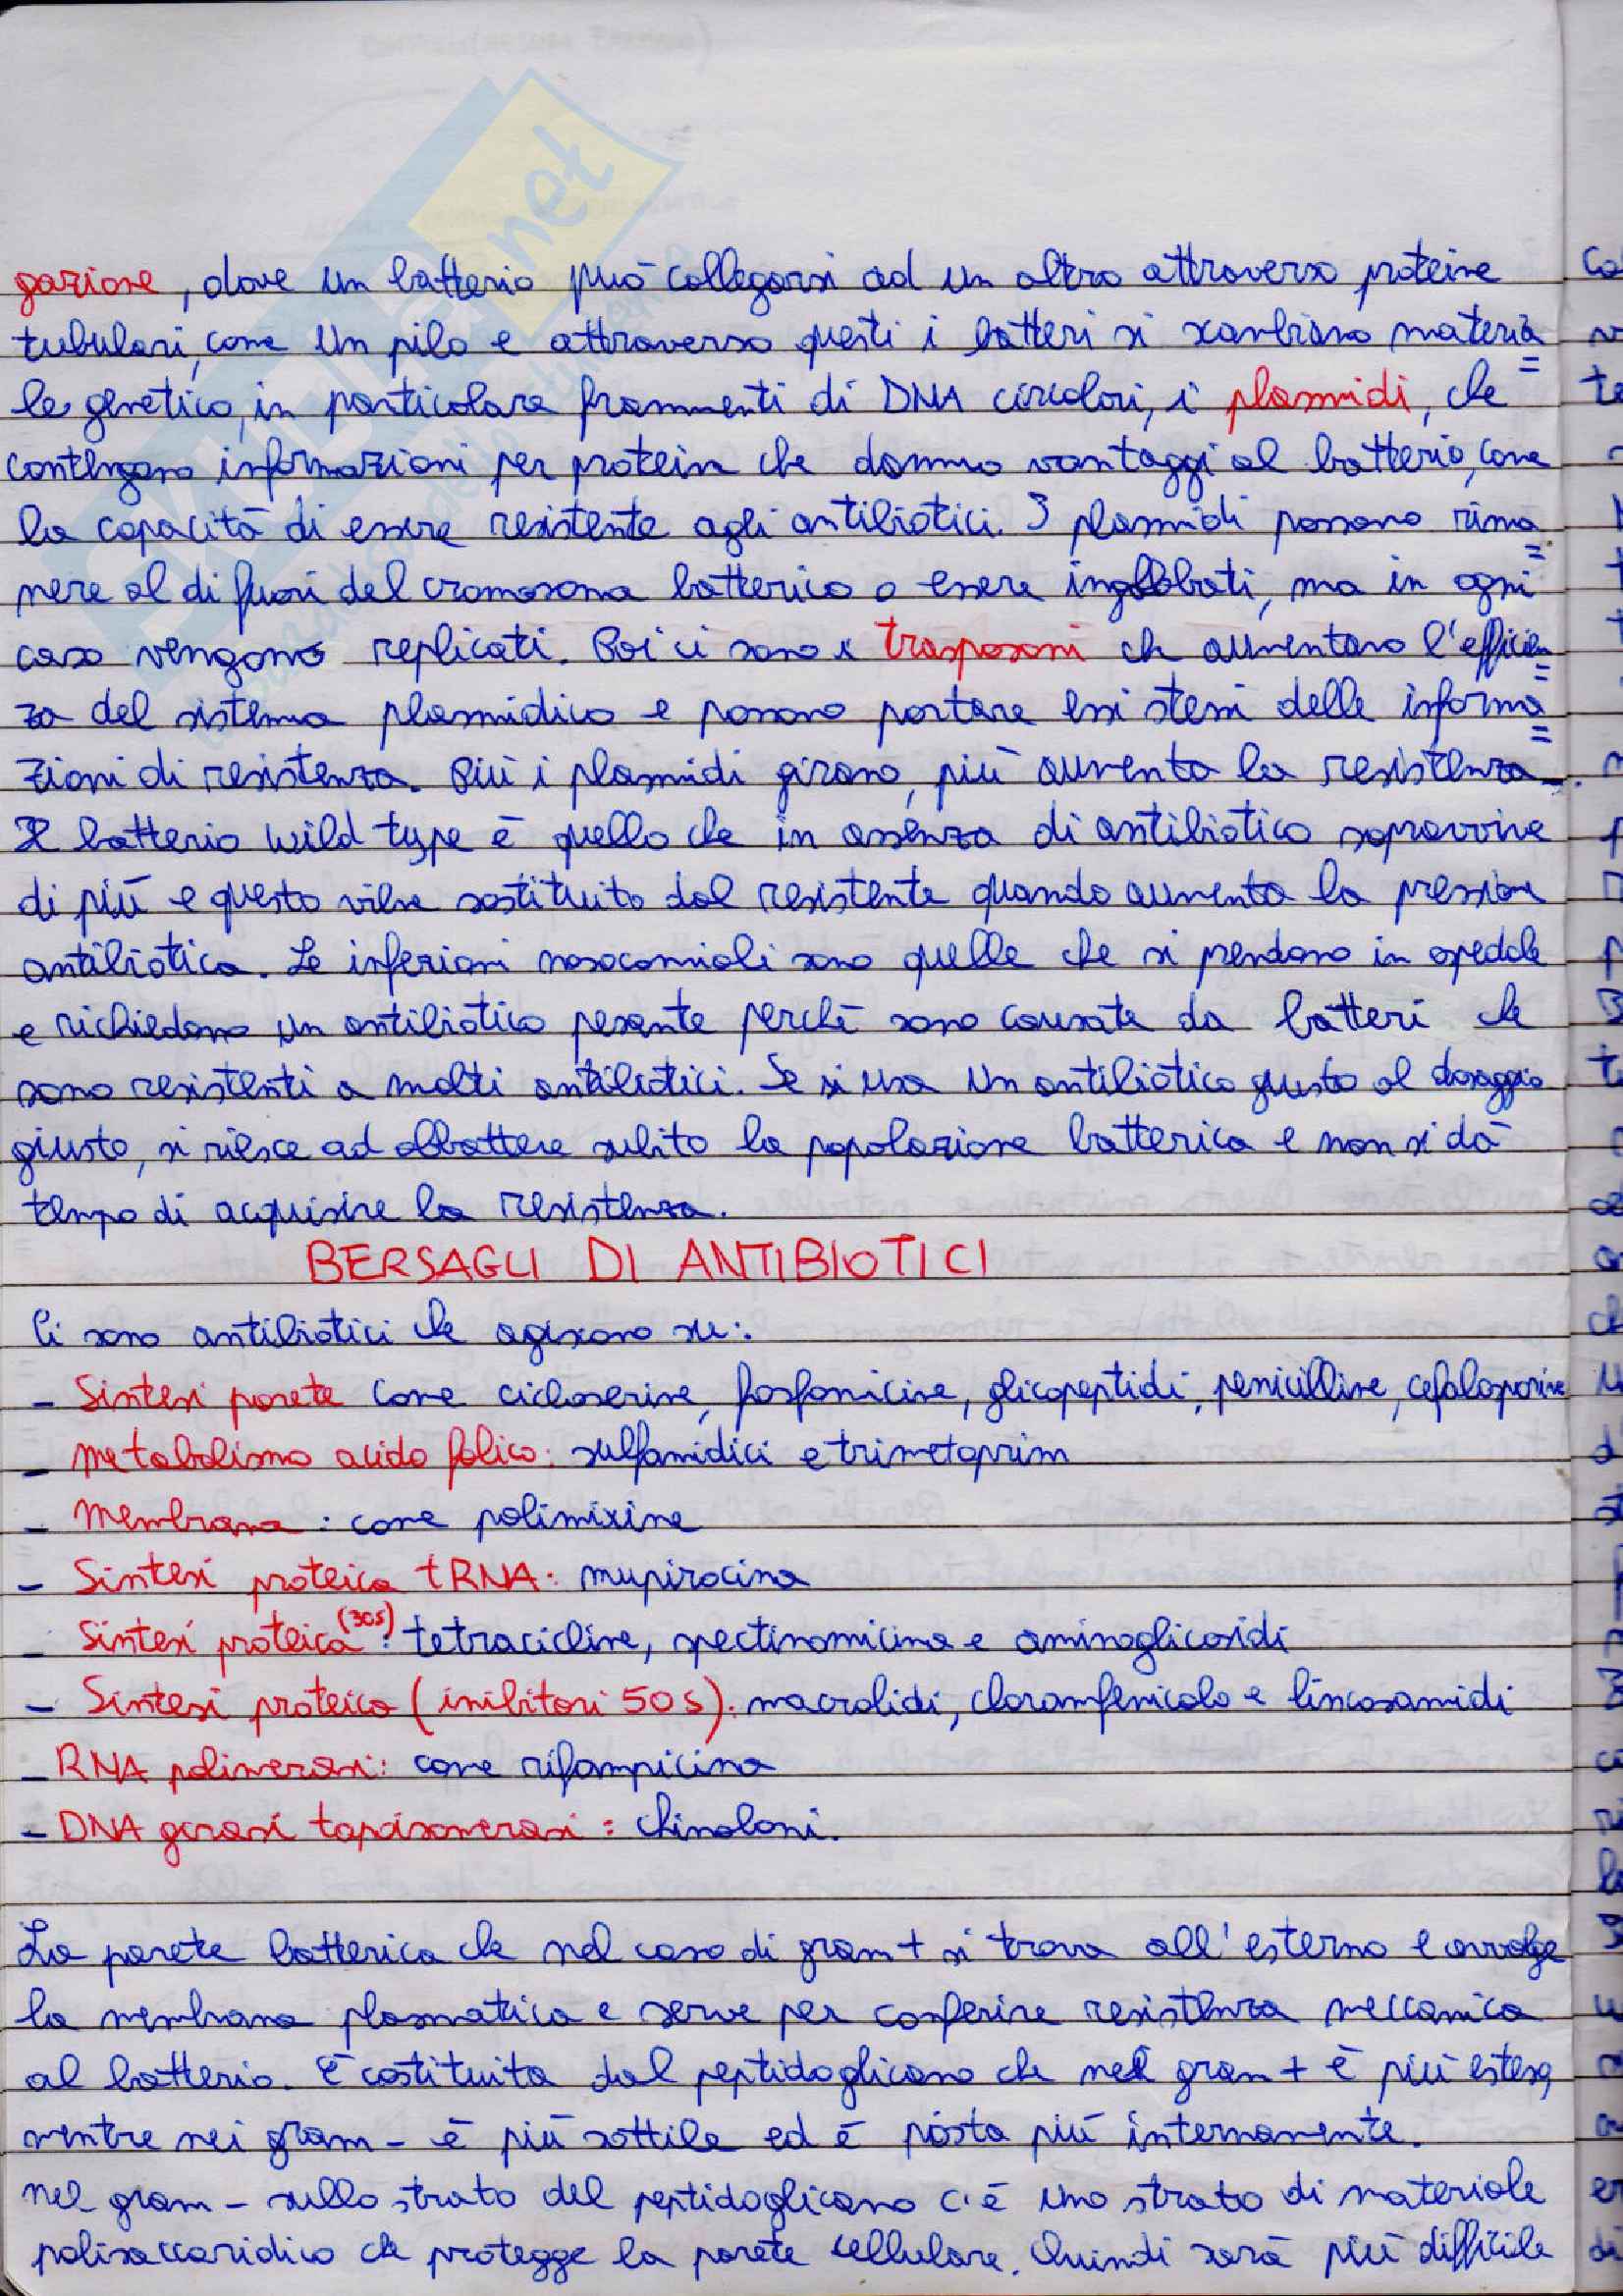 gazione, dove un batterio può collegarsi ad un altro attraverso proteine
tubulari, come un pilo e attraverso questi i batteri si scambiano materia=
le genetico, in particolare frammenti di DNA circolari, i plasmidi, che
contengono informazioni per protein che danno vantaggi al batterio, come
la capacità di essere resistente agli antibiotici. I plasmidi possono rima=
nere al di fuori del cromosoma batterico o essere inglobati, ma in ogni
caso vengono replicati. Poi ci sono i trasposoni ch aumentano l'efficien=
za del sistema plasmidico e possono portare essi stessi delle informa=
zioni di resistenza. Più i plasmidi girano, più aumenta la resistenza.
Il batterio wild type è quello che in assenza di antibiotico sopravvive
di più e questo viene sostituito dal resistente quando aumenta la pressione
antibiotica. Le infezioni nosocomiali sono quelle che si prendono in ospedale
e richiedono un antibiotico pesante perchè sono causate da batteri che
sono resistenti a molti antibiotici. Se si usa un antibiotico giusto al dosaggio
giusto, si riesce ad abbattere subito la popolazione batterica e non si dà
tempo di acquisire la resistenza.
BERSAGLI DI ANTIBIOTICI
Ci sono antibiotici che agiscono su:
- Sintesi parete come cicloserine, fosfomicine, glicopeptidi, penicilline, cefalosporine
- metabolismo acido folico: sulfamidici e trimetoprim
- Membrana: come polimixine
- Sintesi proteica tRNA: mupirocina
- Sintesi proteica (30S): tetracicline, spectinomicina e aminoglicosidi
- Sintesi proteica (inibitori 50S): macrolidi, cloramfenicolo e lincosamidi
- RNA polimerasi: come rifampicina
- DNA girasi topoisomerasi: chinoloni.
La parete batterica che nel caso di gram+ si trova all'esterno e avvolge
la membrana plasmatica e serve per conferire resistenza meccanica
al batterio. È costituita dal peptidoglicano che nel gram+ è più esteso,
mentre nei gram- è più sottile ed è posta più internamente.
Nel gram- sullo strato del peptidoglicano c'è uno strato di materiale
polisaccaridico che protegge la parete cellulare. Quindi sarà più difficile